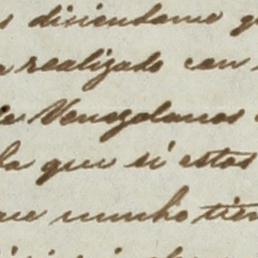 disiendome
realizado con
Venezolanos
la que si estas
que mucho tien